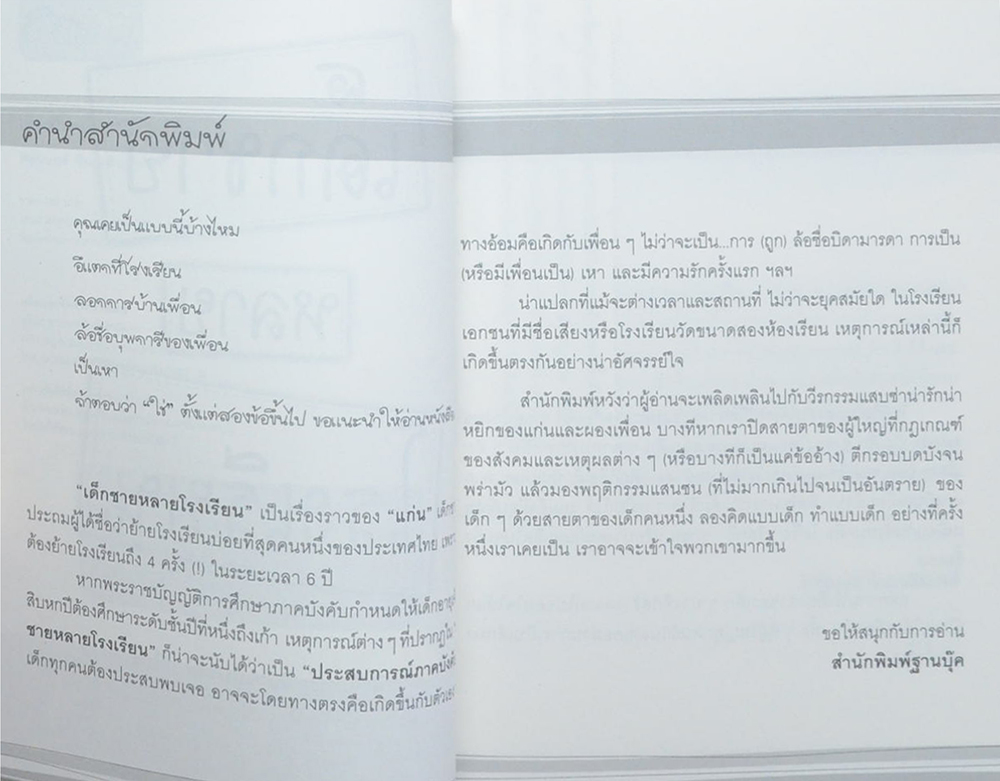 คำนำสำนักพิมพ์
คุณเคยเป็นแบบนี้บ้างไหม
อึแตกที่โรงเรียน
ลอกการบ้านเพื่อน
ล้อชื่อบุพการีของเพื่อน
เป็นเหา
ถ้าตอบว่า “ใช่” ตั้งแต่สองข้อขึ้นไป ขอแนะนำให้อ่าน
“เด็กชายหลายโรงเรียน” เป็นเรื่องราวของ “แก่น”
ประถมผู้ได้ชื่อว่าย้ายโรงเรียนบ่อยที่สุดคนหนึ่งของประเทศไทย
ต้องย้ายโรงเรียนถึง 4 ครั้ง (!) ในระยะเวลา 6 ปี
หากพระราชบัญญัติการศึกษาภาคบังคับกำหนดให้เด็ก
สิบหกปีต้องศึกษาระดับชั้นปีที่หนึ่งถึงเก้า เหตุการณ์ต่างๆ ที่ปรากฏ
ชายหลายโรงเรียน” ก็น่าจะนับได้ว่าเป็น “ประสบการณ์ภาค
เด็กทุกคนต้องประสบพบเจอ อาจจะโดยทางตรงคือเกิดขึ้นกับ
ทางอ้อมคือเกิดกับเพื่อน ๆ ไม่ว่าจะเป็น...การ (ถูก) ล้อชื่อบิดามารดา การเป็น
(หรือมีเพื่อนเป็น) เหา และมีความรักครั้งแรก ฯลฯ
น่าแปลกที่แม้จะต่างเวลาและสถานที่ ไม่ว่าจะยุคสมัยใด ในโรงเรียน
เอกชนที่มีชื่อเสียงหรือโรงเรียนวัดขนาดสองห้องเรียน เหตุการณ์เหล่านี้ก็
เกิดขึ้นตรงกันอย่างน่าอัศจรรย์ใจ
สำนักพิมพ์หวังว่าผู้อ่านจะเพลิดเพลินไปกับวีรกรรมแสบซ่าน่ารักน่า
หยิกของแก่นและผองเพื่อน บางทีหากเราปิดสายตาของผู้ใหญ่ที่กฎเกณฑ์
ของสังคมและเหตุผลต่าง ๆ (หรือบางทีก็เป็นแค่ข้ออ้าง) ตีกรอบบดบังจน
พร่ามัว แล้วมองพฤติกรรมแสนซน (ที่ไม่มากเกินไปจนเป็นอันตราย) ของ
เด็ก ๆ ด้วยสายตาของเด็กคนหนึ่ง ลองคิดแบบเด็ก ทำแบบเด็ก อย่างที่ครั้ง
หนึ่งเราเคยเป็น เราอาจจะเข้าใจพวกเขามากขึ้น
ขอให้สนุกกับการอ่าน
สำนักพิมพ์ฐานบุ๊ค